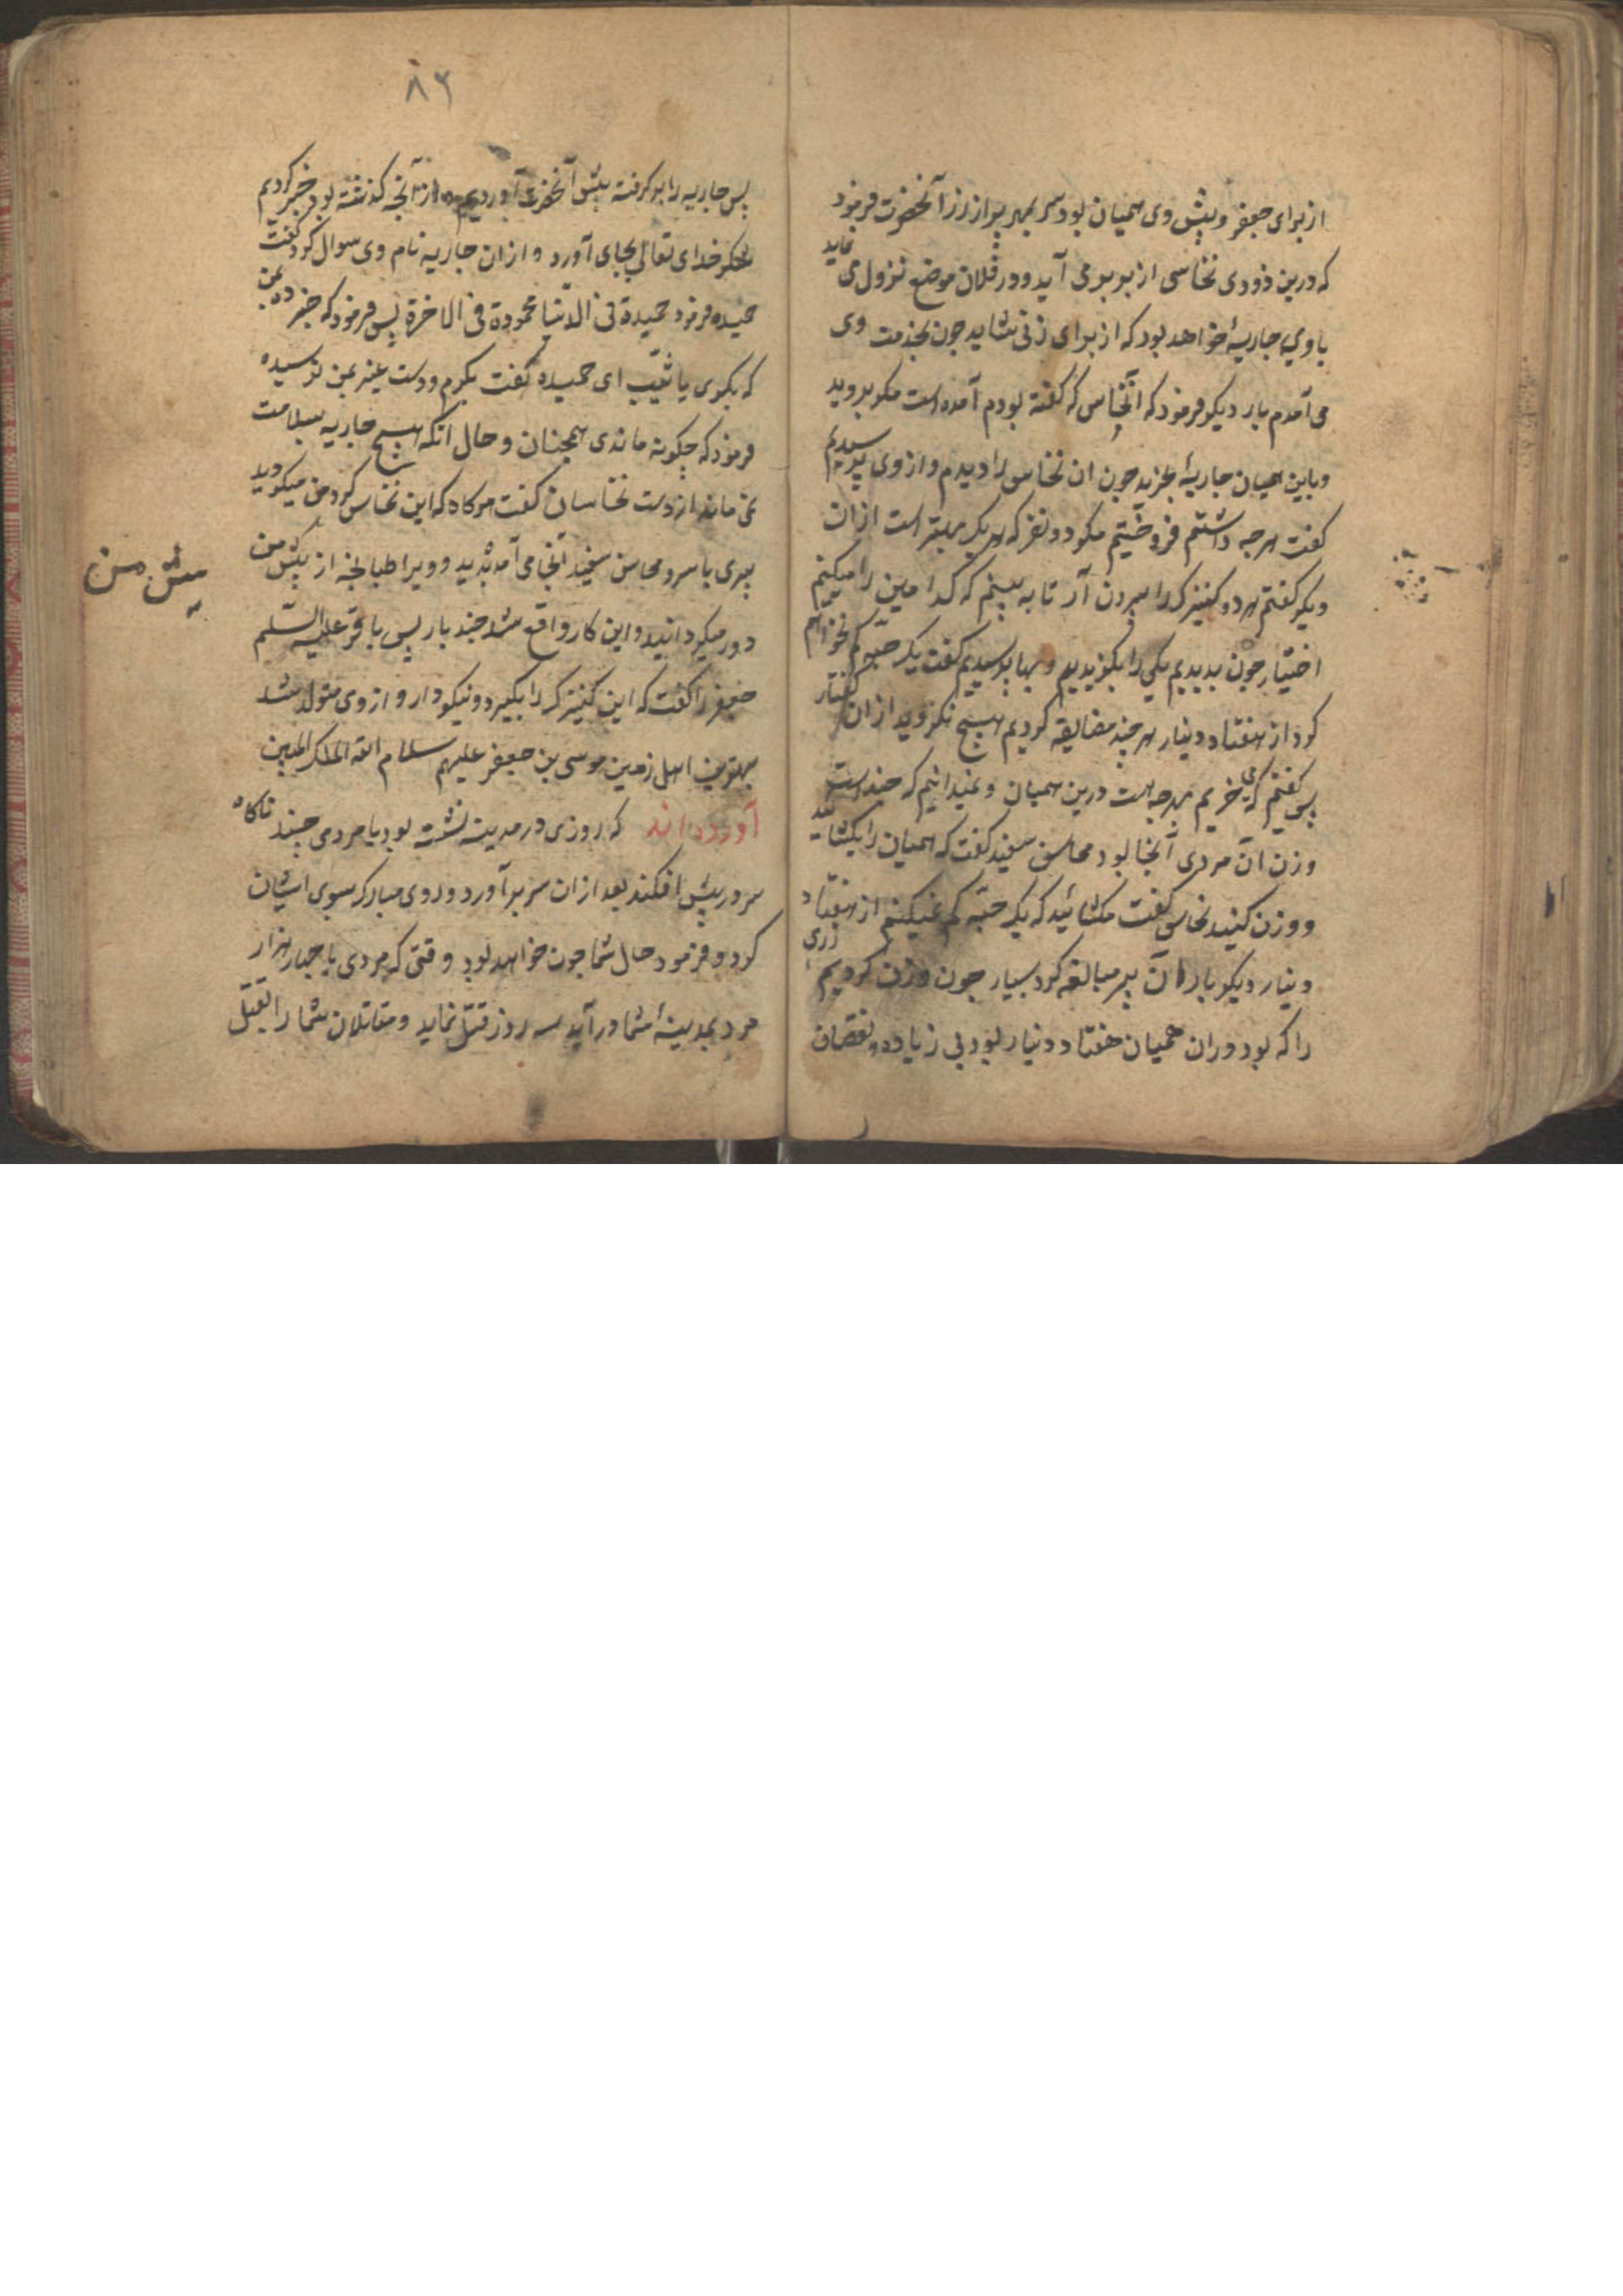 از برای جعفر و پیش وی همیان بود سر بمهر پر از زر آنحضرت فرمود
که درین زودی نخاسی از بربر می آید و در فلان موضع نزول می نماید
با وی جاریهٔ خواهد بود که از برای زنی شاید چون بخدمت وی
می آمدم بار دیکر فرمود که آن نخاس که کفته بودم آمده است مکر بروید
و باین همیان جاریهٔ بخرید چون ان نخاس را دیدم و از وی پرسیدم
کفت هرچه داشتم فروختیم مکر دو نفر که هر یک بهتر است از ان
دیکر کفتم هر دو کنیزک را بیرون آر تا به بینم که کدامین را میکنم
اختیار چون بدیدیم یکی را بکزیدیم و بها پرسیدیم کفت یک حبه کم نخواهم
کرد از هفتاد دینار هر چند مضایقه کردیم هیچ نکردید از ان کفتار
پس کفتم که می خریم بهرچه هست درین همیان و نمیدانیم که چند است
وزن ان مردی آنجا بود محاسن سفید کفت که همیان را بکشائید
و وزن کنید نخاس کفت مکشائید که یک حبه کم نمیکنم از هفتاد
دینار دیکر بار آن پیر مبالغه کرد بسیار چون وزن کردیم زری
را که بود در ان همیان هفتاد دینار بود بی زیاده و نقصان
۸۲
پس جاریه را بر کرفته پیش آنحضرت آوردیم و از آنچه کذشته بود خبر کردیم
شکر خدای تعالی بجای آورد و از ان جاریه نام وی سوال کرد کفت
حمیده فرمود حمیدة فی الدنیا محمودة فی الاخرة پس فرمود که خبر ده بمن
که بکری یا ثیب ای حمیده کفت بکرم و دست غیر بمن نرسیده
فرمود که چکونه ماندی همچنان و حال انکه هیچ جاریه بسلامت
نمی ماند از دست نخاسان کفت هرکاه که این نخاس کرد من میکردید
پیری با سر و محاسن سفید آنجا می آمد پدید و ویرا طپانچه از پیش من
پیش من
دور میکردانید و این کار واقع شد چند بار پس باقر علیه السلم
جعفر را کفت که این کنیزک را بکیر و نیکو دار و از وی متولد شد
بهترین اهل زمین موسی بن جعفر علیهم سلام الله الملک المبین
آورده اند که روزی در مدینه نشسته بود با مردی چند ناکاه
سر در پیش افکند بعد از ان سر برآورد و روی مبارک سوی ایشان
کرد و فرمود حال شما چون خواهد بود وقتی که مردی با چهار هزار
مرد بمدینهٔ شما درآید سه روز قتل نماید و مقاتلان شما را بقتل